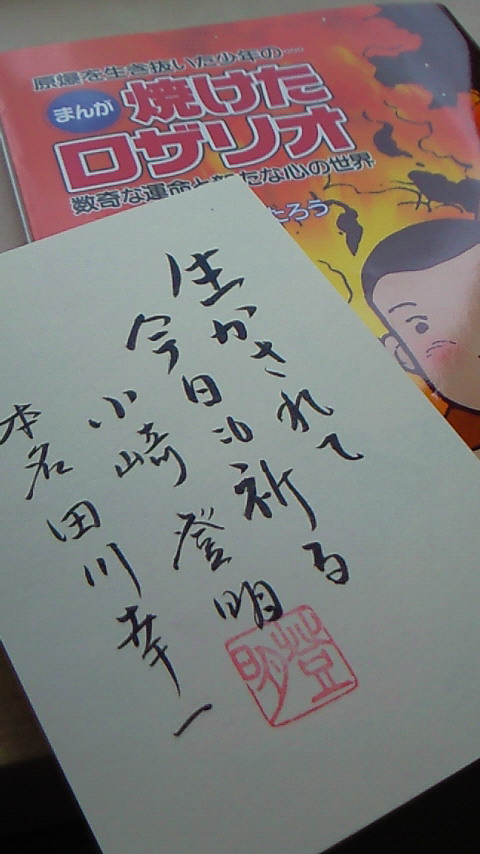 原爆を生き抜いた少年の…
まんが 焼けた
ロザリオ
数奇な運命と新たな心の世界
たろう
生かされて
今日も祈る
小崎登明
本名田川幸一
登明